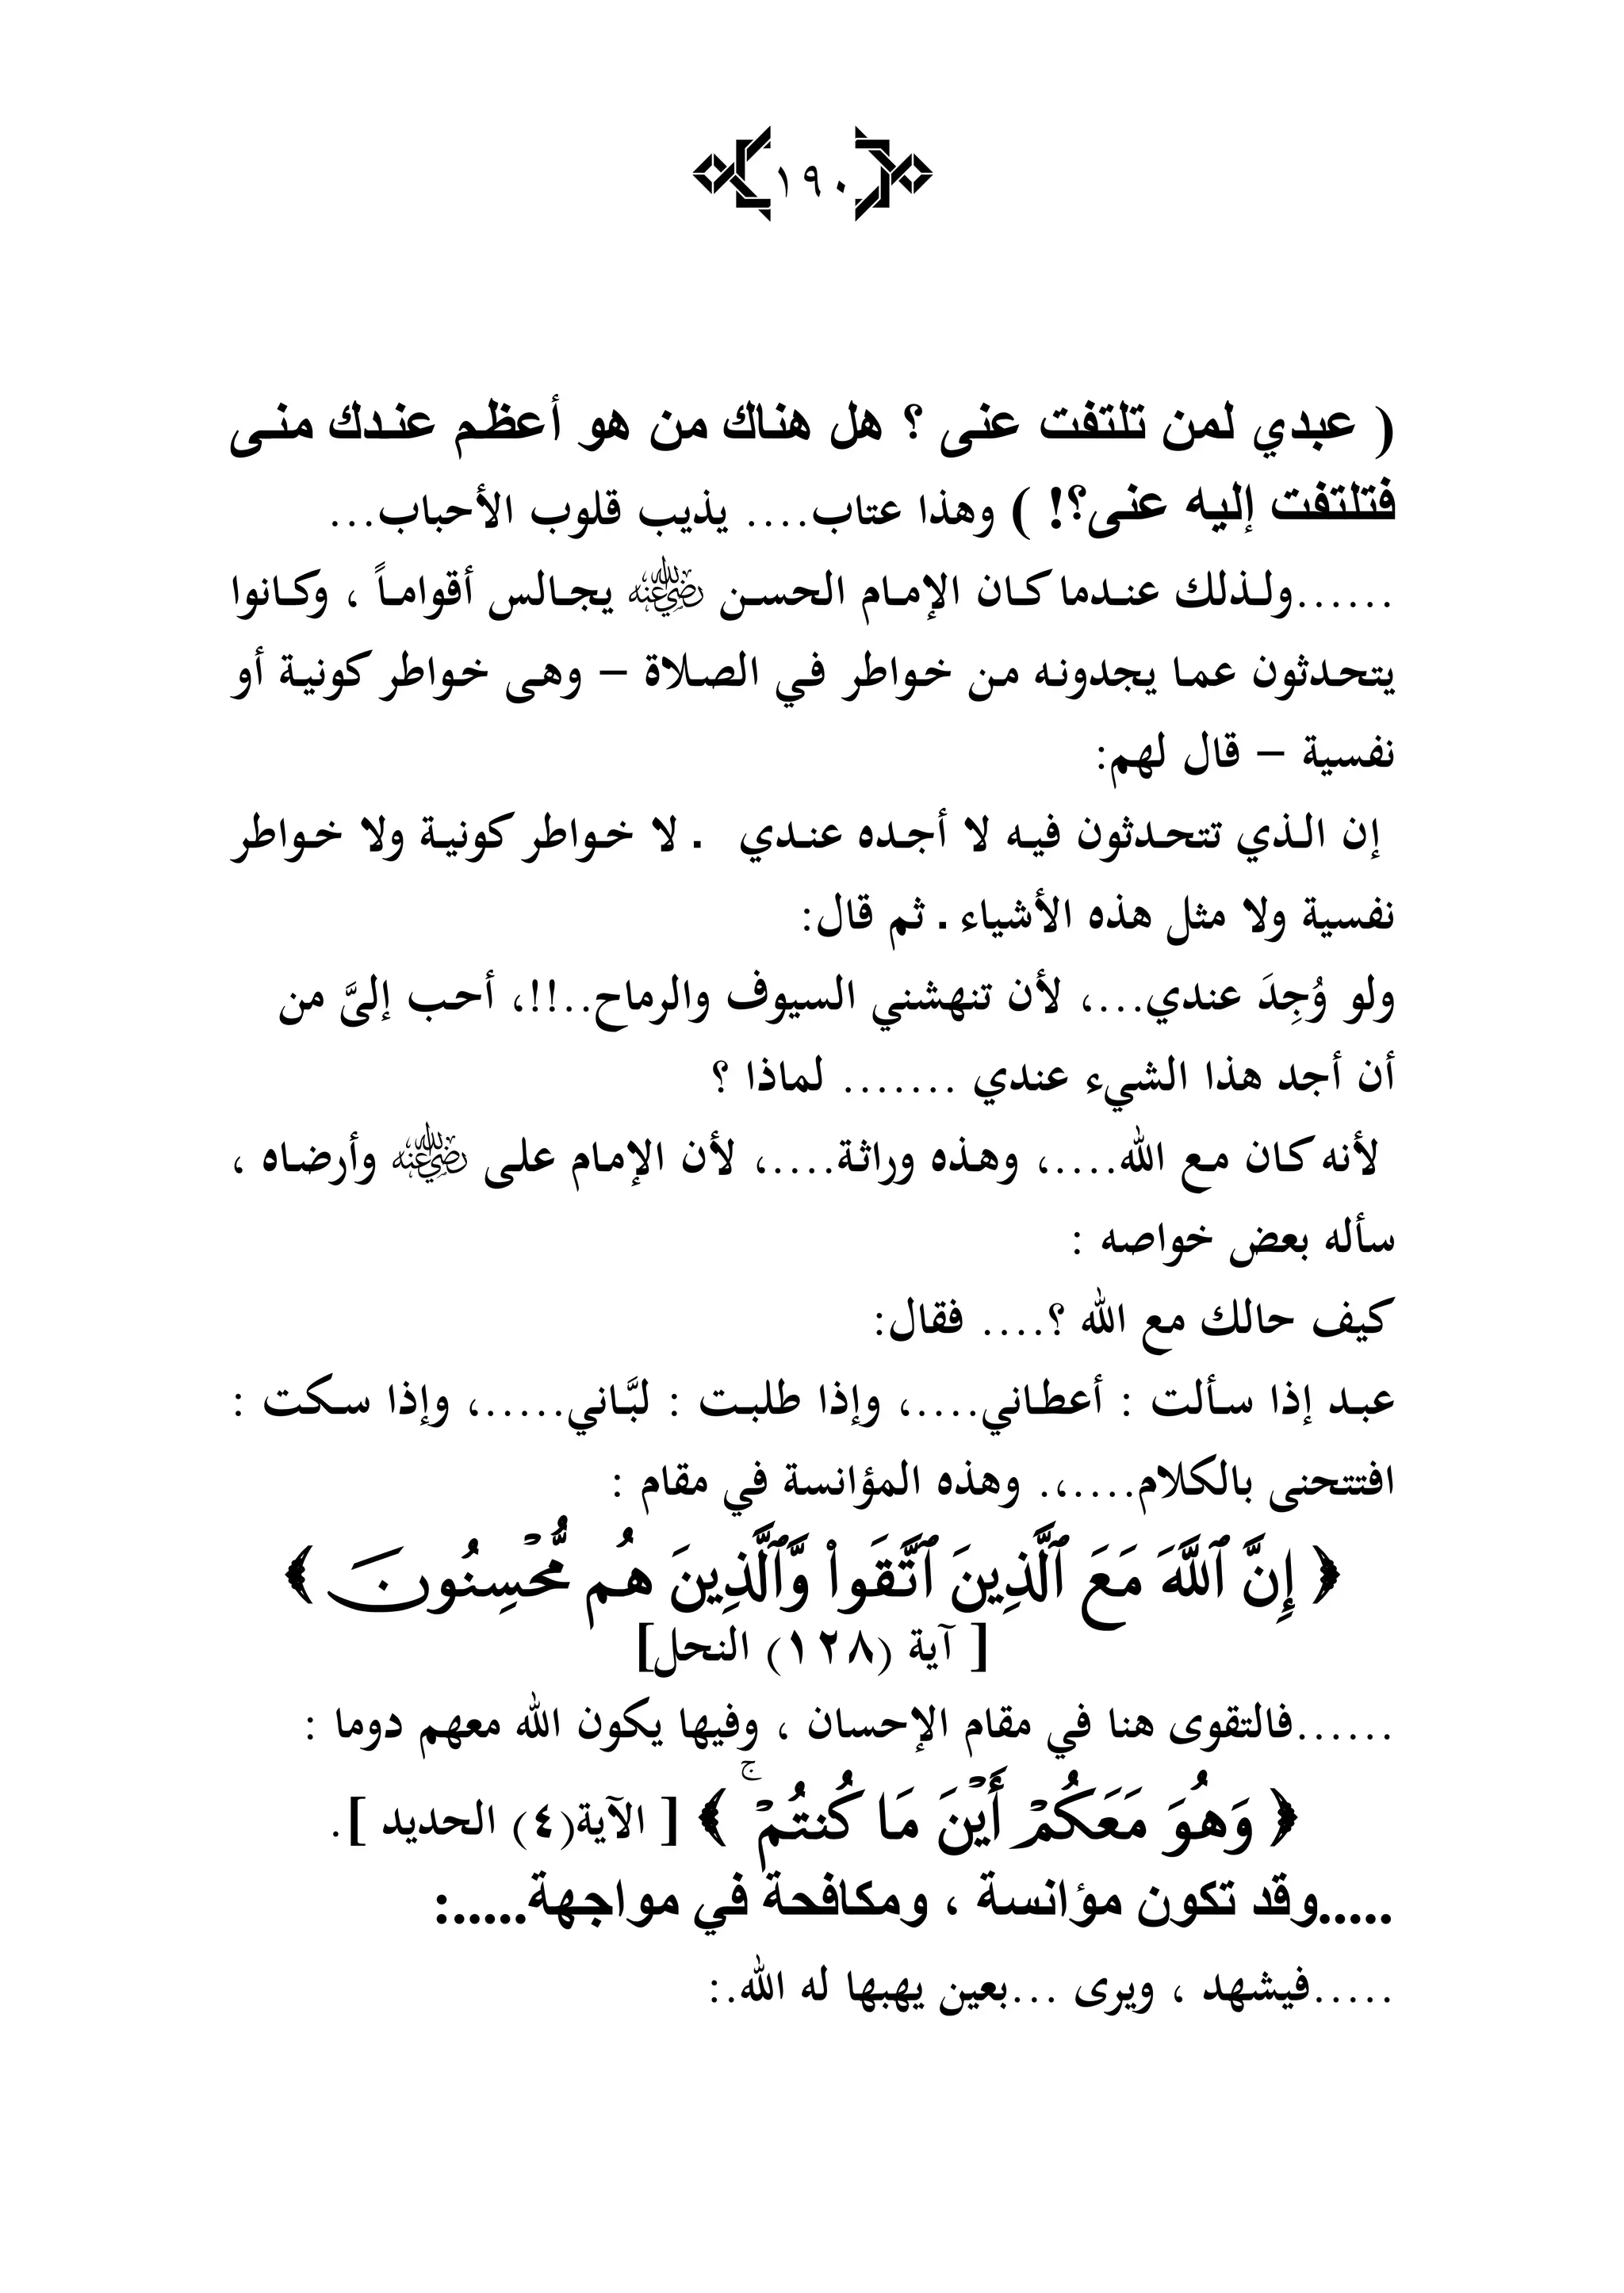 ١٩٠
( عبدي لمن تلتفت عنى ؟ هل هناك من هو أعظم عندك منى
فتلتفت إليه عنى؟! ) وهذا عتاب.... يذيب قلوب الأحباب...
......ولذلك عندما كان الإمام الحسن رضي الله عنه يجالس أقواماً ، وكانوا
يتحدثون عما يجدونه من خواطر في الصلاة – وهى خواطر كونية أو
نفسية – قال لهم:
إن الذي تتحدثون فيه لا أجده عندي . لا خواطر كونية ولا خواطر
نفسية ولا مثل هذه الأشياء . ثم قال:
ولو وُجِدَ عندي...، لأن تنهشني السيوف والرماح..!!، أحب إلىَّ من
أن أجد هذا الشيء عندي ....... لماذا ؟
لأنه كان مع الله....، وهذه وراثة....، لأن الإمام على رضي الله عنه وأرضاه ،
سأله بعض خواصه :
كيف حالك مع الله ؟.... فقال:
عبد إذا سألت : أعطاني....، وإذا طلبت : لبَّاني.....، وإذا سكت :
افتتحنى بالكلام....،. وهذه المؤانسة في مقام :
﴿ إِنَّ ٱللَّهَ مَعَ ٱلَّذِينَ ٱتَّقَوا۟ وَّٱلَّذِينَ هُم مُّحْسِنُونَ ﴾
[ آية (١٢٨) النحل]
......فالتقوى هنا في مقام الإحسان ، وفيها يكون الله معهم دوما :
﴿ وَهُوَ مَعَكُمْ أَيْنَ مَا كُنتُمْ ۚ ﴾ [ الآية(٤) الحديد ].
.....وقد تكون مؤانسة ، ومكافحة في مواجهة.....:
.....فيشهد ، ويرى ...بعين يهبها له الله.: